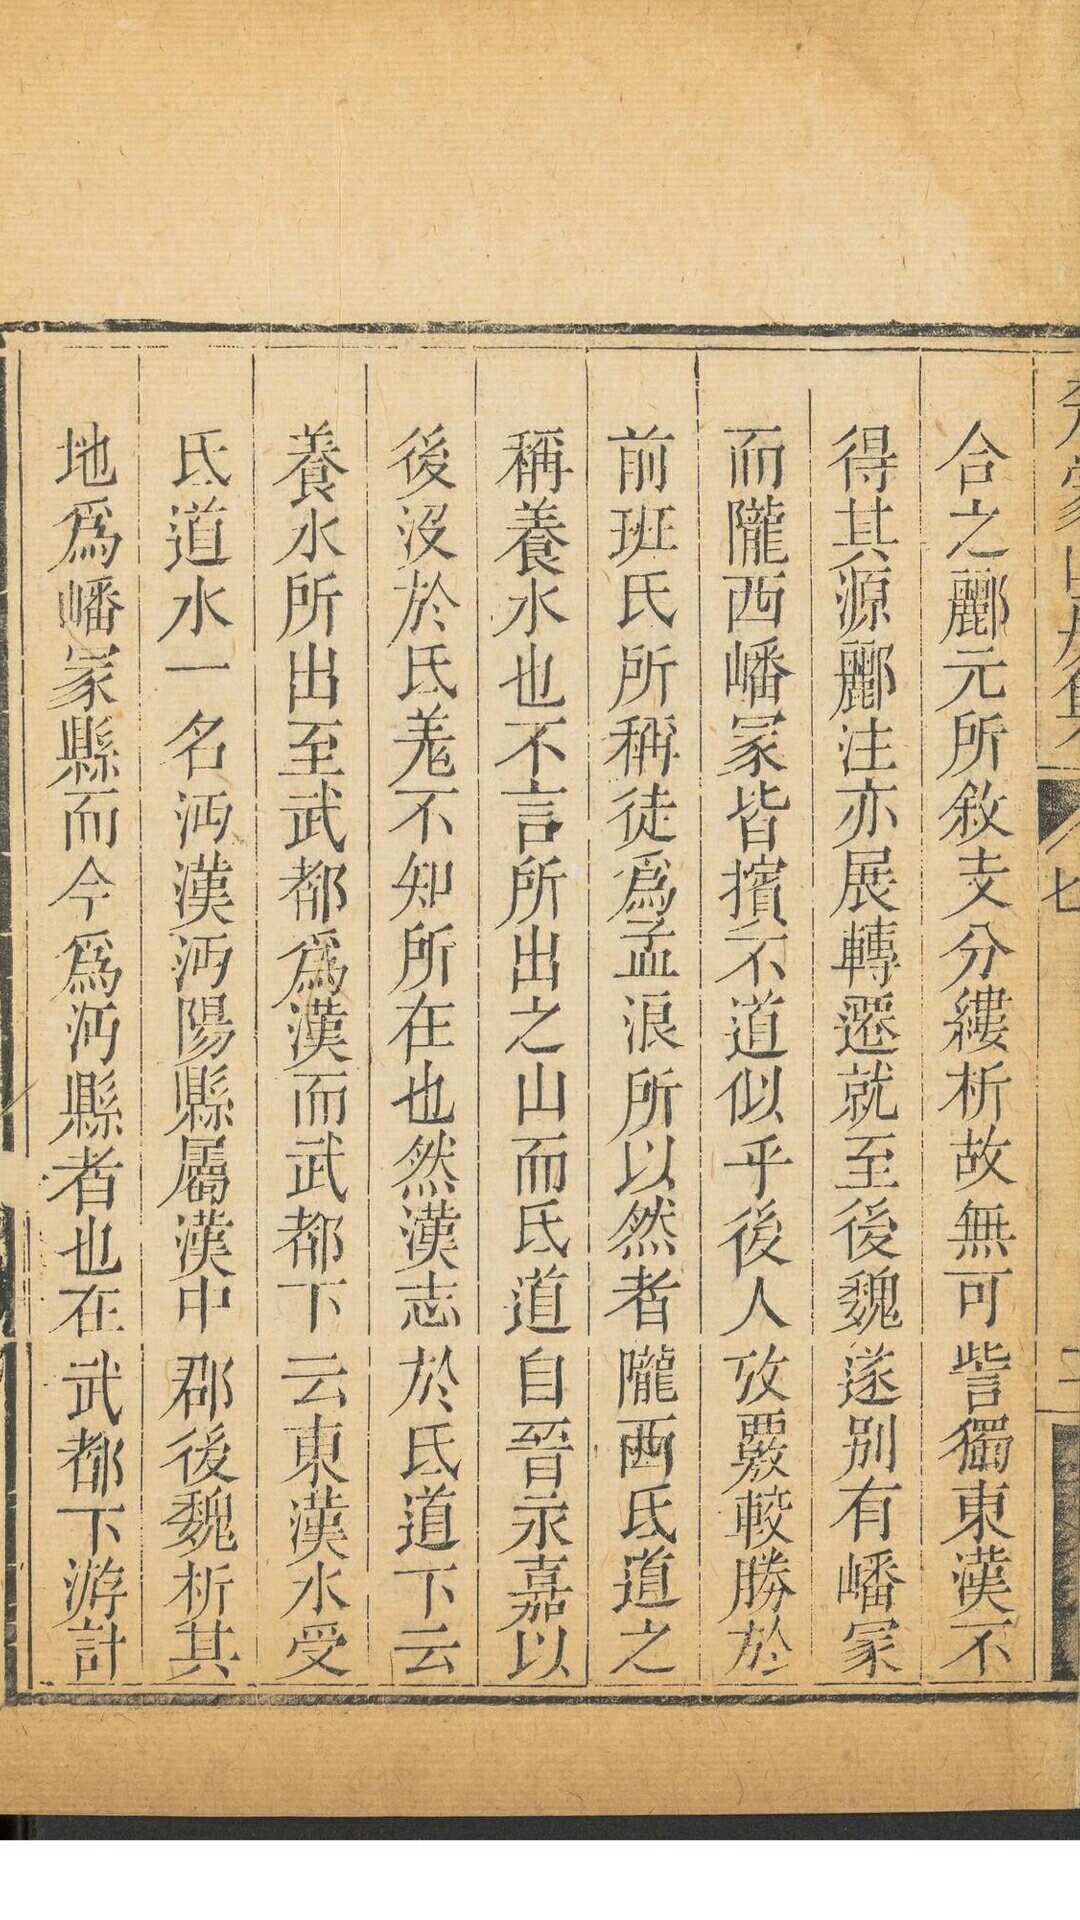 合之酈元所敘支分縷析故無可訾獨東漢不
得其源酈注亦展轉遷就至後魏遂別有嶓冢
而隴西嶓冢皆擯不道似乎後人攷覈較勝於
前班氏所稱徒爲孟浪所以然者隴西氐道之
稱養水也不言所出之山而氐道自晉永嘉以
後沒於氐羌不知所在也然漢志於氐道下云
養水所出至武都爲漢而武都下云東漢水受
氐道水一名沔漢沔陽縣屬漢中郡後魏析其
地爲嶓冢縣而今爲沔縣者也在武都下游計